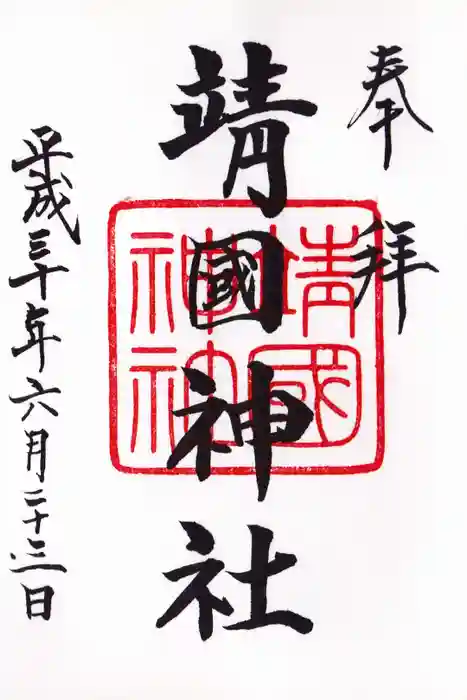 奉拝
靖國神社
靖國神社
平成三十年六月二十三日